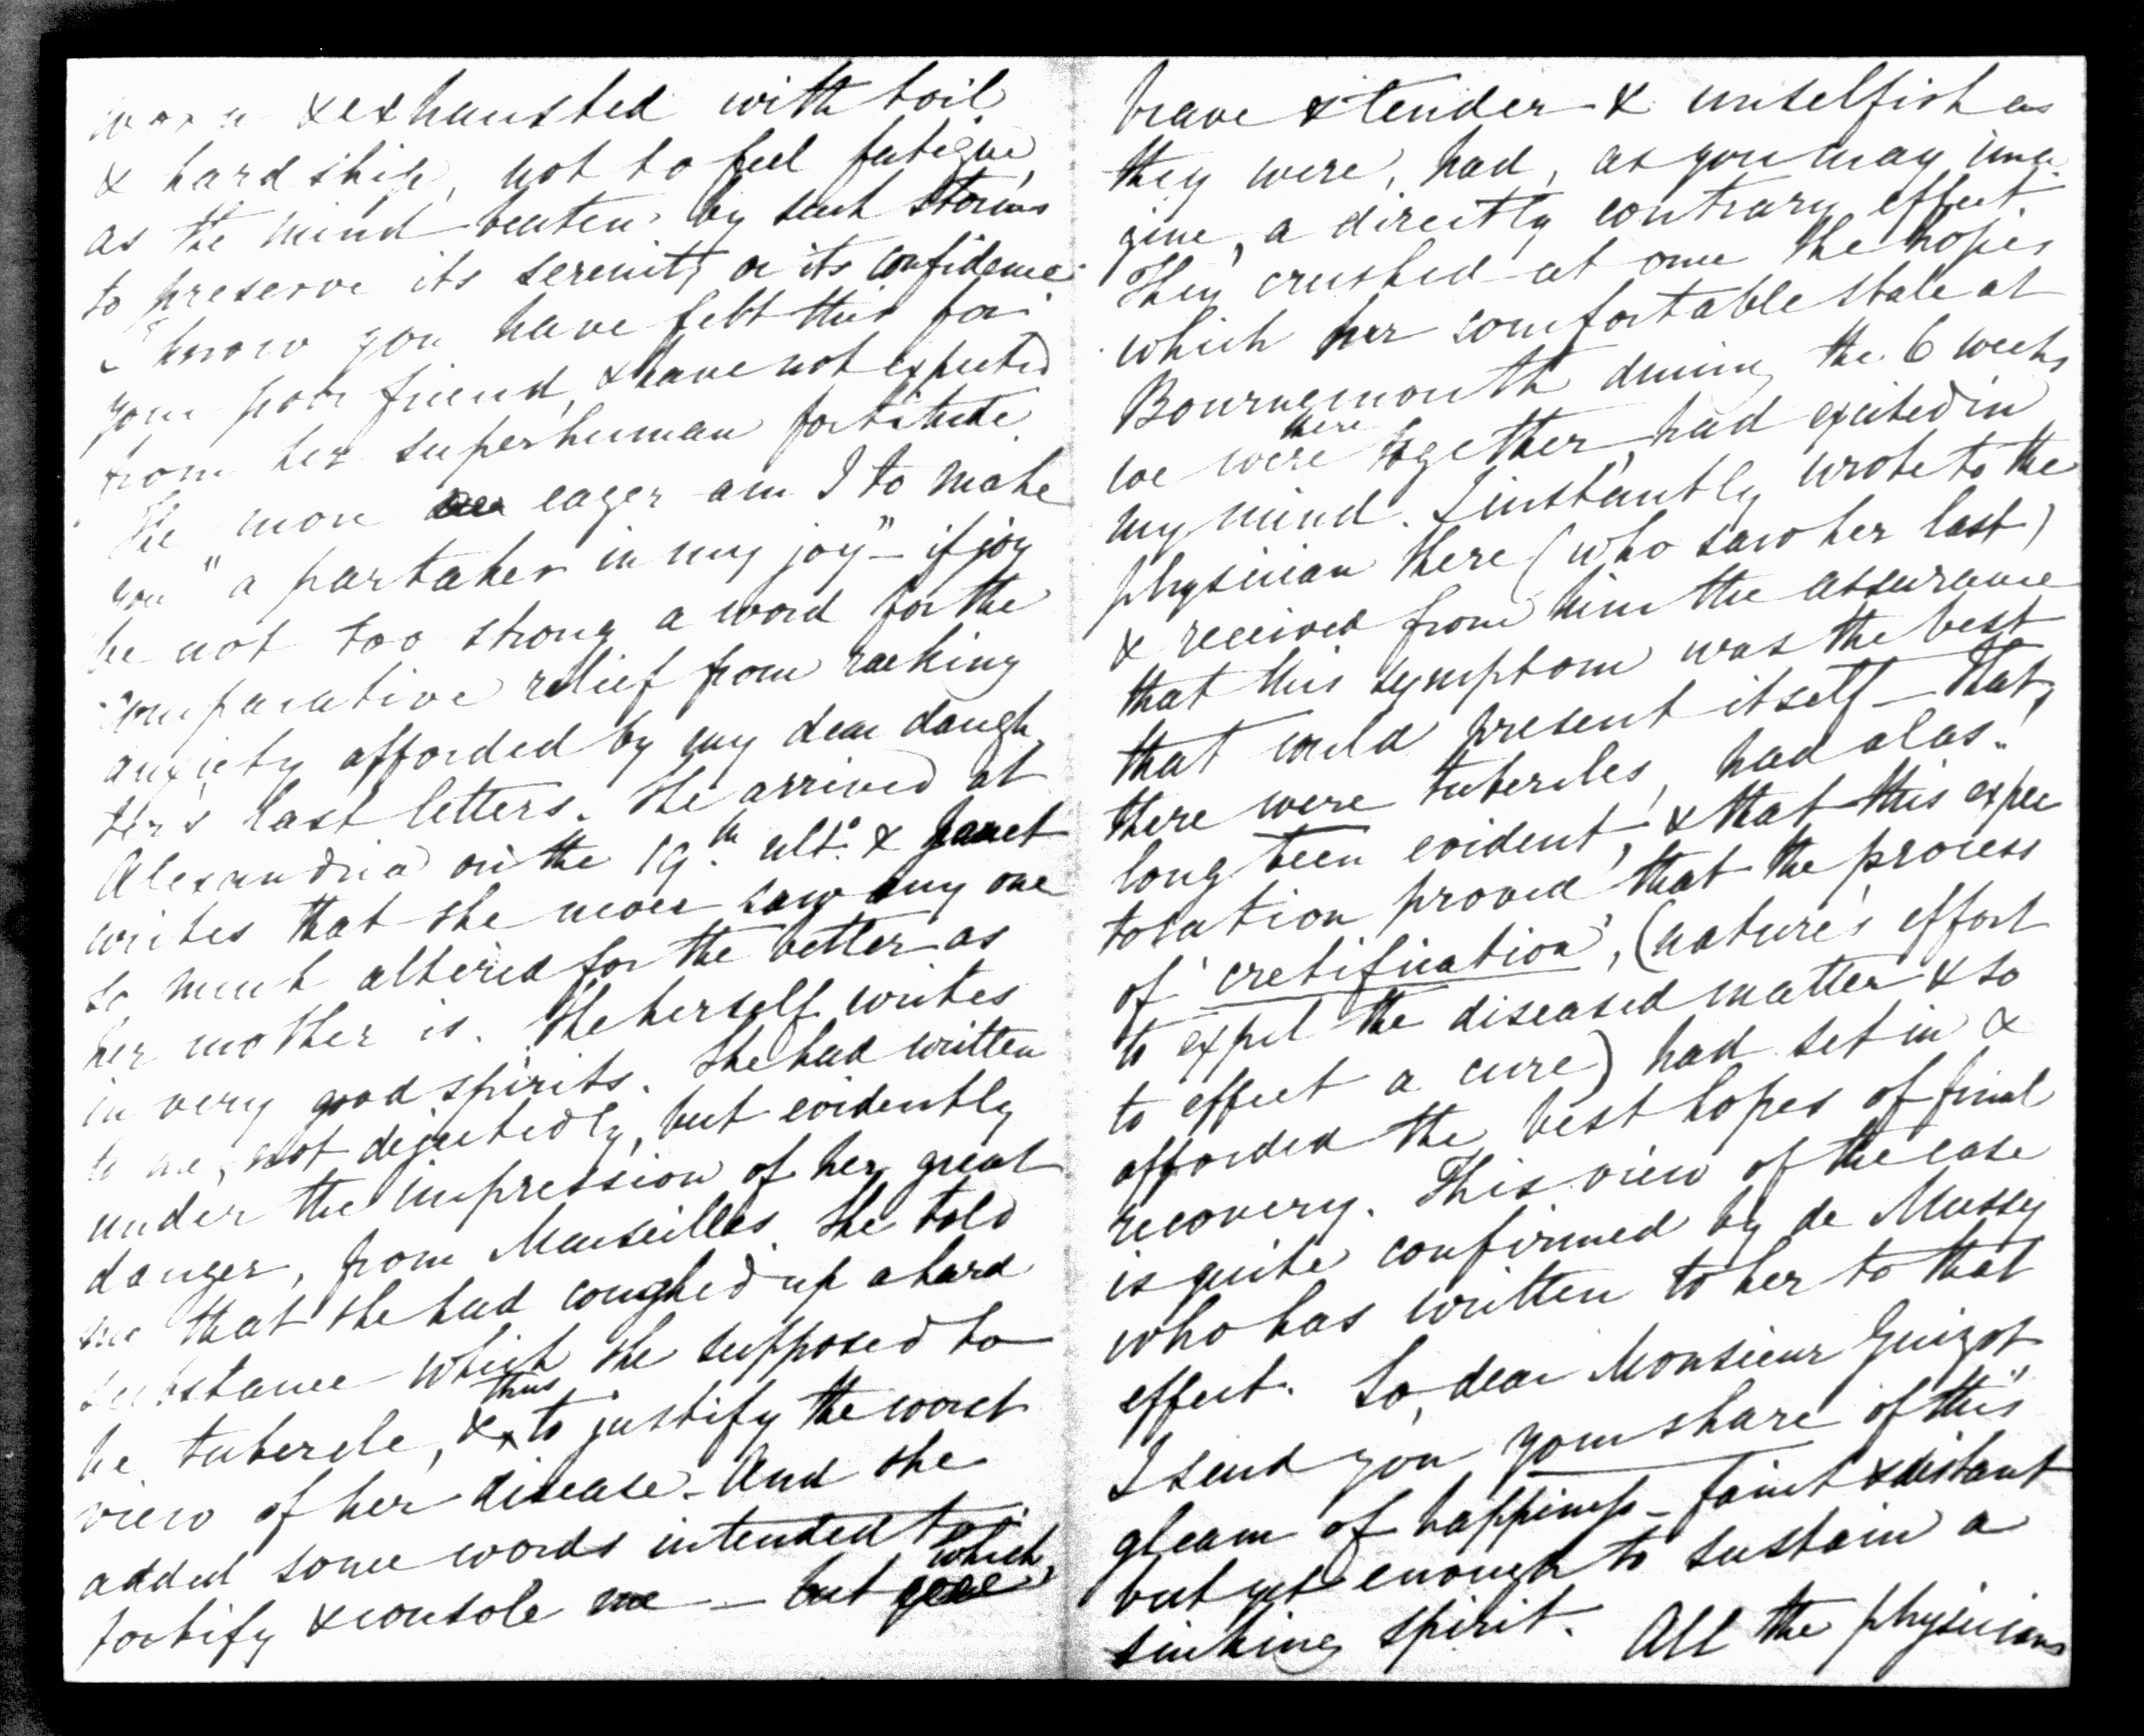 worn & exhausted with toil
& hardship, not to feel fatigue,
as the mind beaten by such storms
to preserve its serenity or its confidence.
I know you have felt this for
your poor friend, & have not expected
from her superhuman fortitude.
The more eager am I to make
you "a partaker in my joy" – if joy
be not too strong a word for the
comparative relief from racking
anxiety afforded by my dear daugh
ter's last letters. She arrived at
Alexandria on the 19th. ulto. & Janet
writes that she never saw any one
so much altered for the better as
her mother is. She herself writes
in very good spirits. She had written
to me, not dejectedly, but evidently
under the impression of her great
danger, from Marseilles. She told
me that she had coughed up a hard
substance which she supposed to
be tubercle, & thus to justify the worst
view of her disease. And she
added some words intended to
fortify & console me – but which,
brave & tender & unselfish as
they were, had, as you may ima
gine, a directly contrary effect.
They crushed at once the hopes
which her comfortable state at
Bournemouth during the 6 weeks
we were there together, had excited in
my mind. I instantly wrote to the
physician there (who saw her last)
& received from him the assurance
that this symptom was the best
that could present itself – that,
there were tubercles, had alas!
long been evident, & that this expec
toration proved that the process
of 'cretification', (nature's effort
to expel the diseased matter & so
to effect a cure) had set in &
afforded the best hopes of final
recovery. This view of the case
is quite confirmed by de Mussy
who has written to her to that
effect. So, dear Monsieur Guizot
I send you your share of this
gleam of happiness – faint & distant
but yet enough to sustain a
sinking spirit. All the physicians